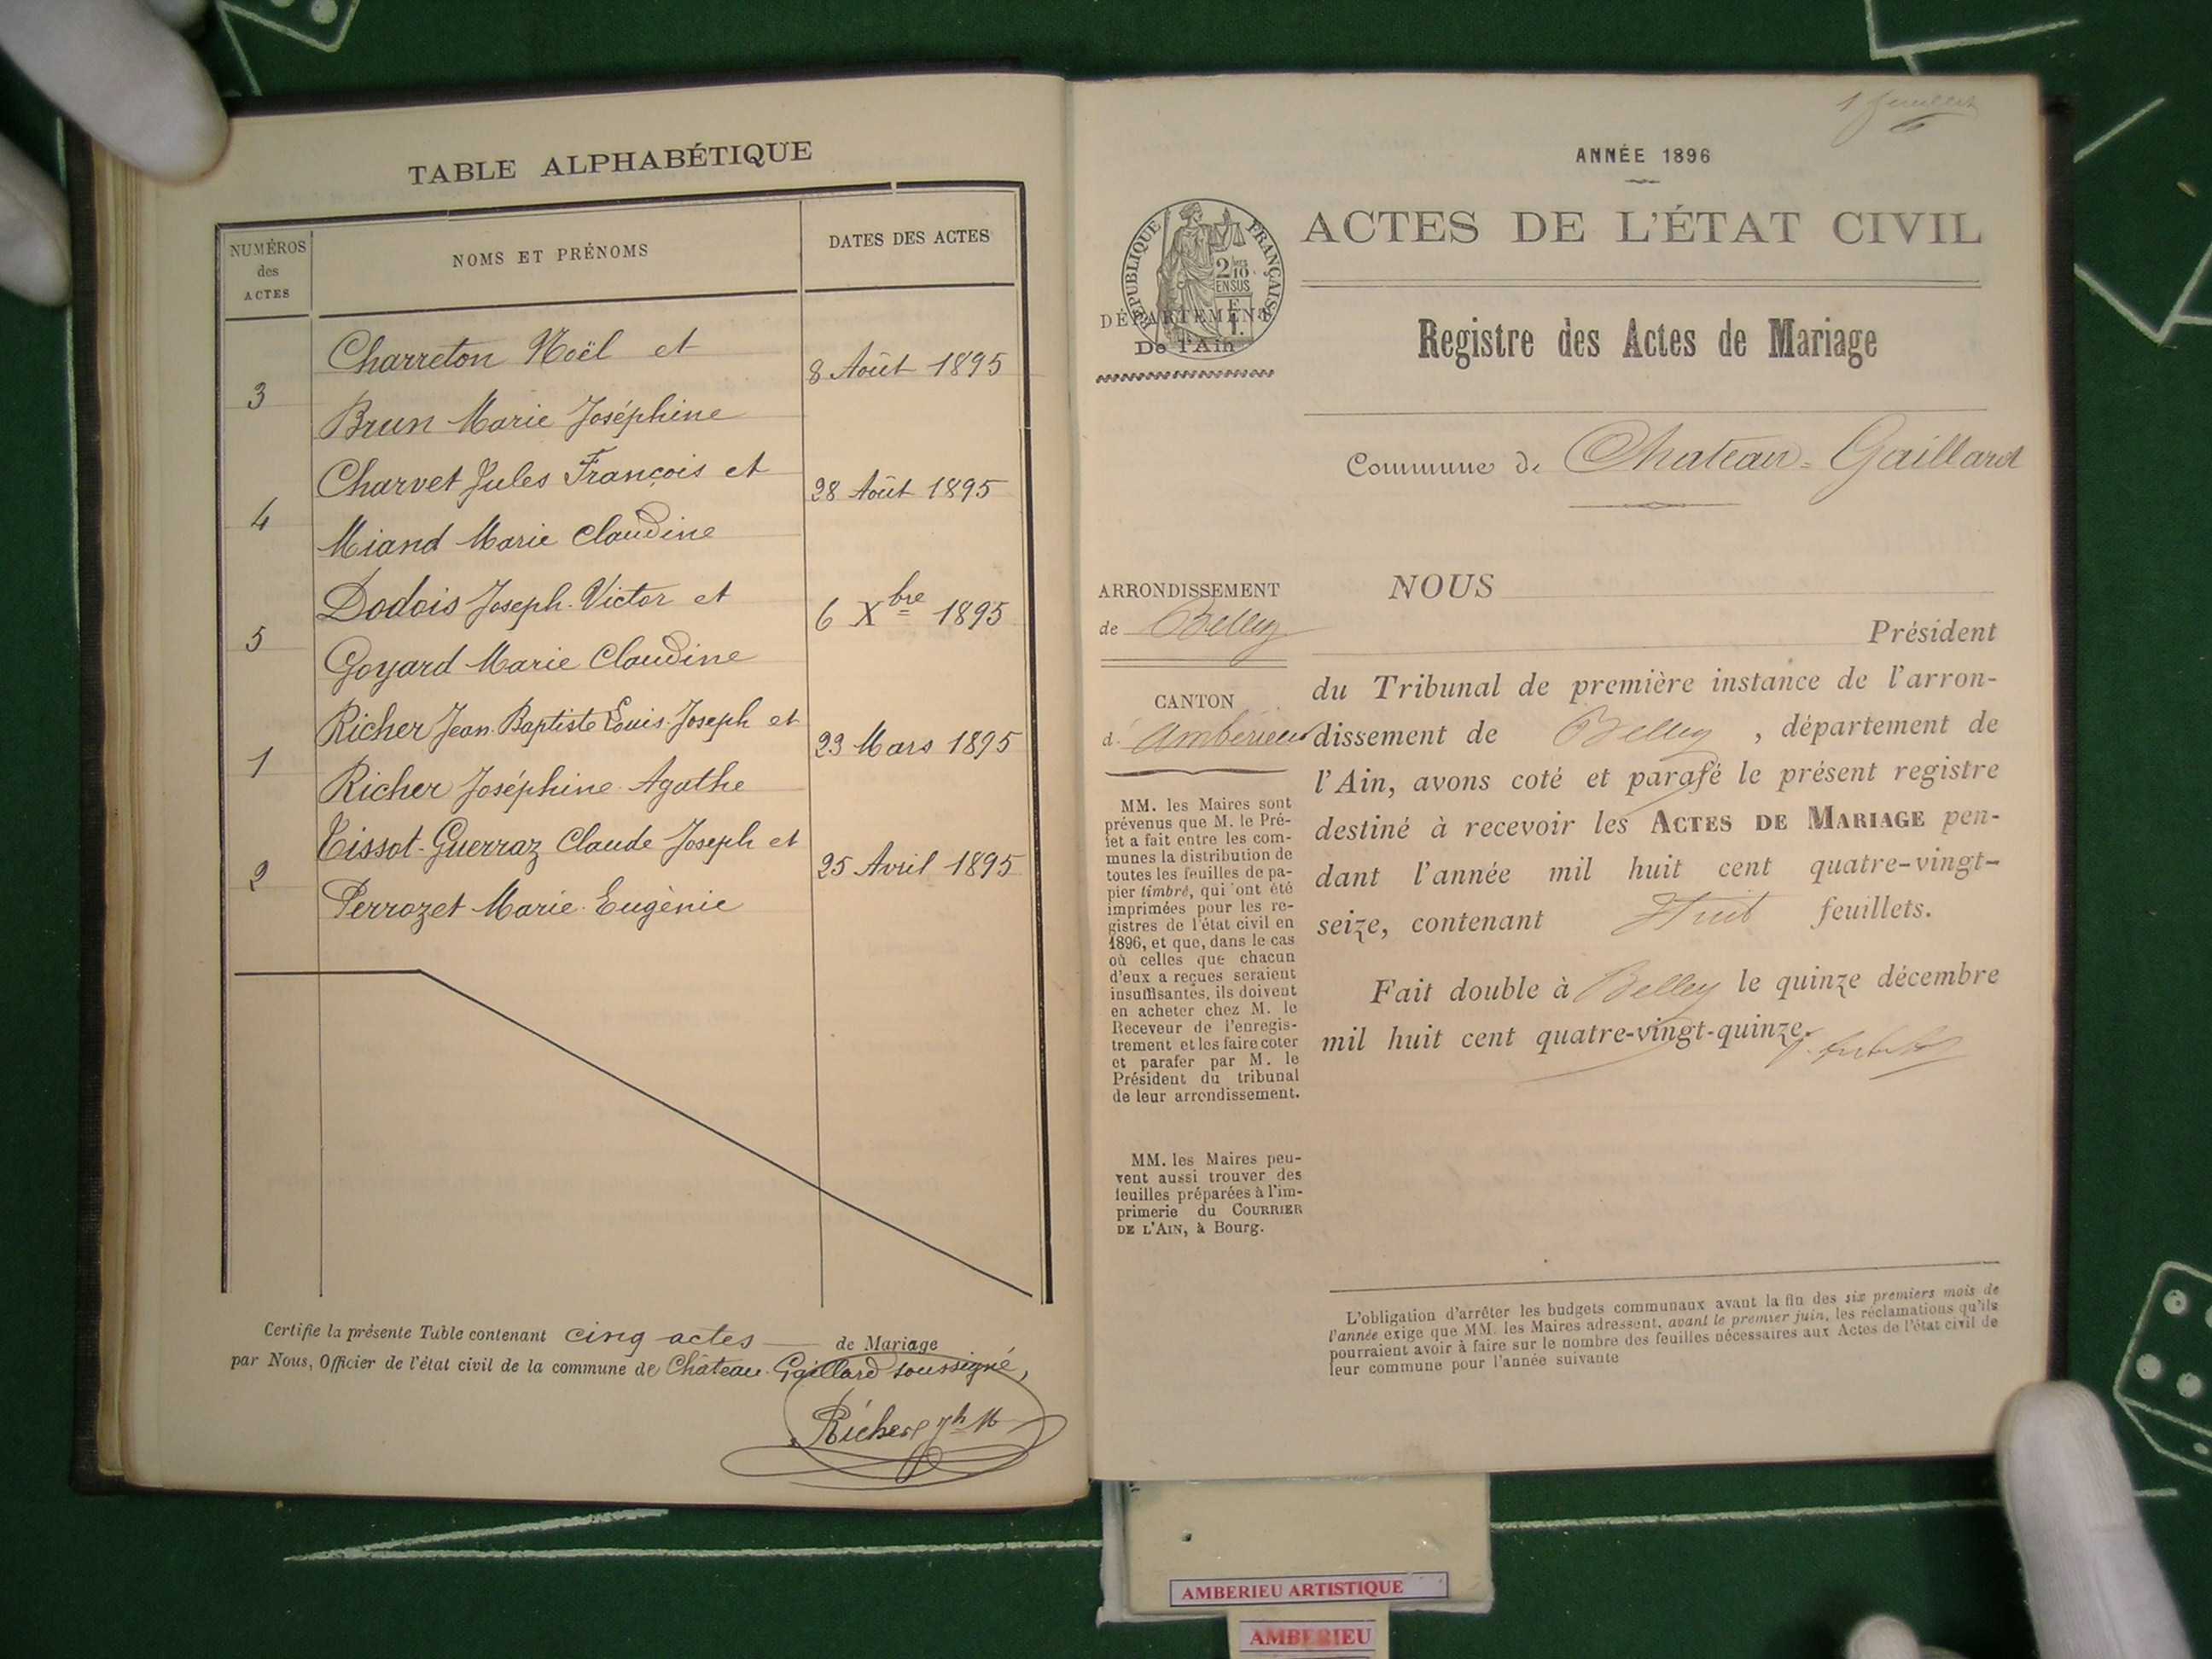 TABLE ALPHABÉTIQUE
NUMÉROS
des
ACTES
NOMS ET PRÉNOMS
DATES DES ACTES
Charreton Noël et
8 Août 1895
3
Brun Marie Joséphine
Charvet Jules François et
28 Août 1895
4
Miand Marie Claudine
Dodois Joseph Victor et
6 Xbre 1895
5
Goyard Marie Claudine
Richer Jean Baptiste Louis Joseph et
23 Mars 1895
1
Richer Joséphine Agathe
Tissot-Guerraz Claude Joseph et
25 Avril 1895
2
Perrozet Marie Eugènie
Certifie la présente Table contenant cinq actes de Mariage
par Nous, Officier de l'état civil de la commune de Château Gaillard soussigné,
Richer
ANNÉE 1896
RÉPUBLIQUE FRANÇAISE
2/10
EN SUS
ACTES DE L'ÉTAT CIVIL
DÉPARTEMENT
De l'Ain
Registre des Actes de Mariage
Commune de Chateau-Gaillard
ARRONDISSEMENT
de Belley
CANTON
d'Ambérieu
MM. les Maires sont
prévenus que M. le Pré-
fet a fait entre les com-
munes la distribution de
toutes les feuilles de pa-
pier timbré, qui ont été
imprimées pour les re-
gistres de l'état civil en
1896, et que, dans le cas
où celles que chacun
d'eux a reçues seraient
insuffisantes, ils doivent
en acheter chez M. le
Receveur de l'enregis-
trement et les faire coter
et parafer par M. le
Président du tribunal
de leur arrondissement.
MM. les Maires peu-
vent aussi trouver des
feuilles préparées à l'im-
primerie du COURRIER
DE L'AIN, à Bourg.
NOUS
Président
du Tribunal de première instance de l'arron-
dissement de Belley, département de
l'Ain, avons coté et parafé le présent registre
destiné à recevoir les ACTES DE MARIAGE pen-
dant l'année mil huit cent quatre-vingt-
seize, contenant Huit feuillets.
Fait double à Belley le quinze décembre
mil huit cent quatre-vingt-quinze.
L'obligation d'arrêter les budgets communaux avant la fin des six premiers mois de
l'année exige que MM. les Maires adressent, avant le premier juin, les réclamations qu'ils
pourraient avoir à faire sur le nombre des feuilles nécessaires aux Actes de l'état civil de
leur commune pour l'année suivante
AMBERIEU ARTISTIQUE
AMBERIEU